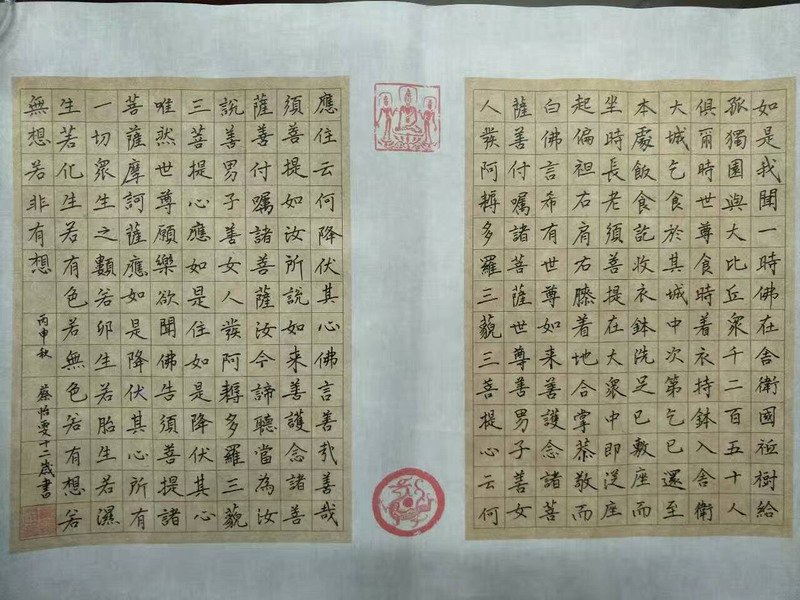 如是我聞一時佛在舍衛國祗樹給
孤獨園與大比丘衆千二百五十人
俱爾時世尊食時着衣持鉢入舍衛
大城乞食於其城中次第乞已還至
本處飯食訖收衣鉢洗足已敷座而
坐時長老須菩提在大衆中即從座
起偏袒右肩右膝着地合掌恭敬而
白佛言希有世尊如来善護念諸菩
薩善付囑諸菩薩世尊善男子善女
人發阿耨多羅三藐三菩提心云何
應住云何降伏其心佛言善哉善哉
須菩提如汝所說如来善護念諸菩
薩善付囑諸菩薩汝今諦聽當為汝
說善男子善女人發阿耨多羅三藐
三菩提心應如是住如是降伏其心
唯然世尊願樂欲聞佛告須菩提諸
菩薩摩訶薩應如是降伏其心所有
一切衆生之類若卵生若胎生若濕
生若化生若有色若無色若有想若
無想若非有想
丙申秋 蔡怡雯十二歲書